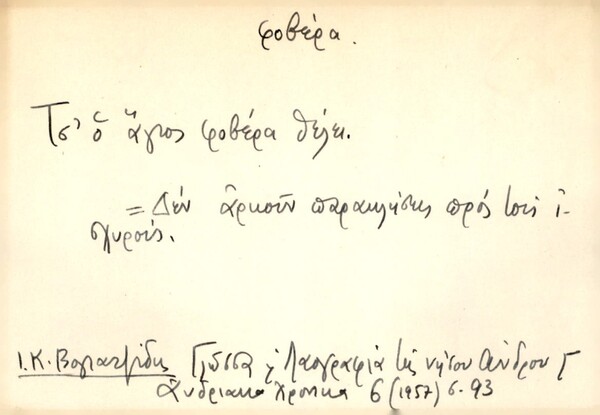 φοβέρα.
Τσ' ὁ ἅγιος φοβέρα θέλει.
= Δὲν ἀρκοῦν παρακλήσεις πρός τούς ἰ-
σχυρούς.
Ι.Κ. Βογιατζίδης Γλῶσσα κ Λαογραφία τῆς νήσου Ἄνδρου Γ
Ἀνδριακα Χρονικα 6 (1957) σ. 93